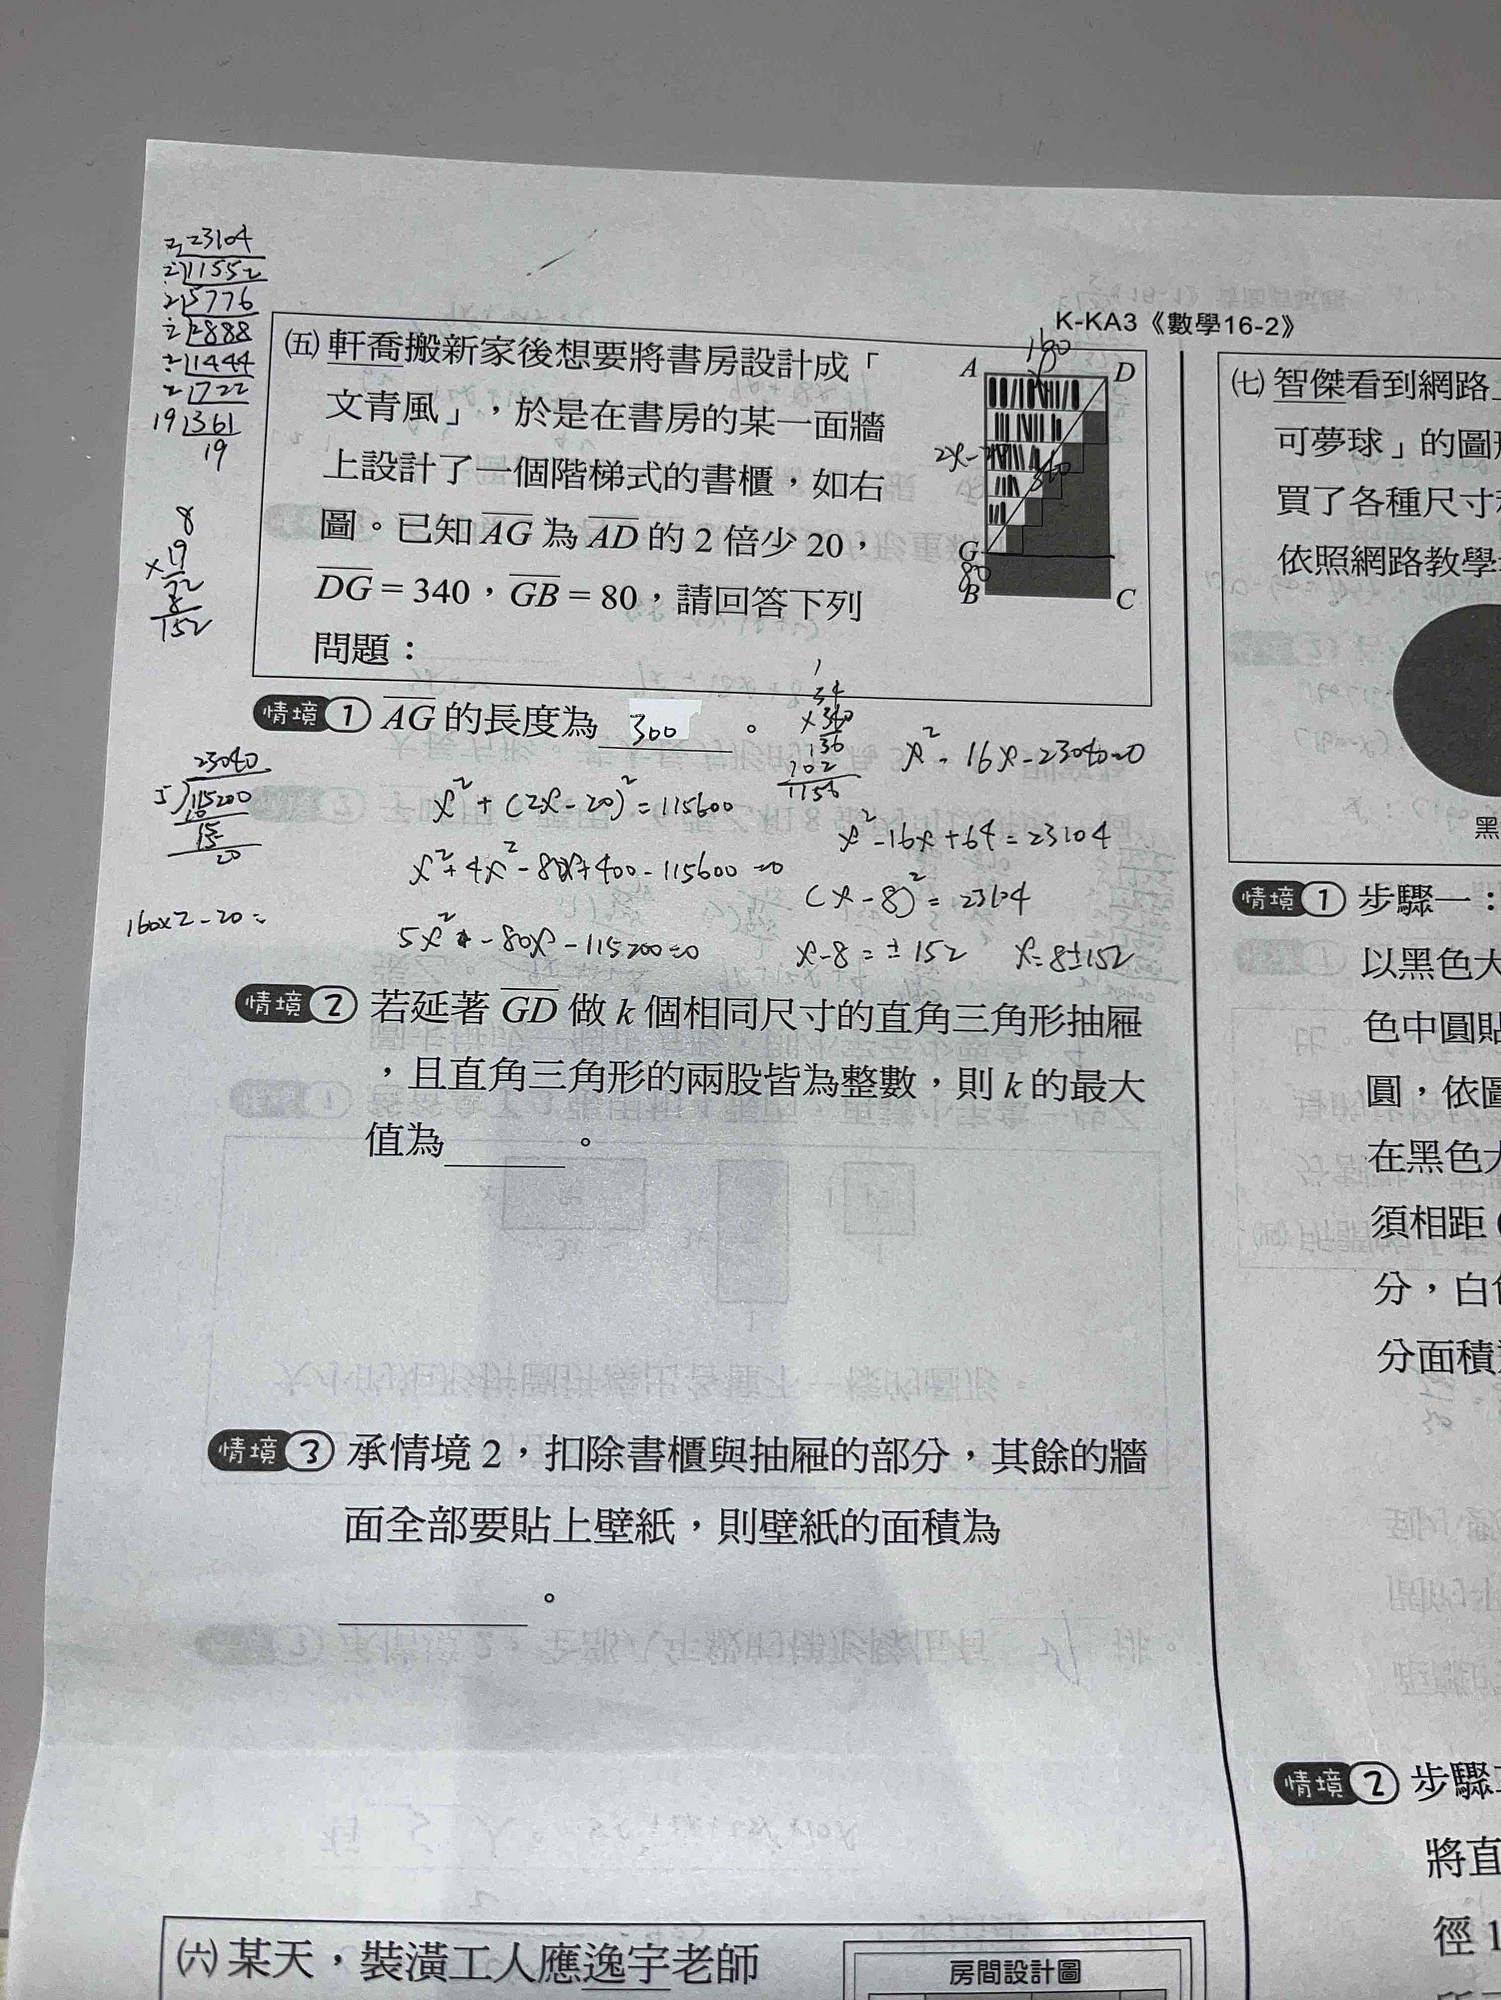 2 23104
2 11552
2 5776
2 2888
2 1444
2 722
19 361
19
8
×19
72
8
152
K-KA3《數學16-2》
㈤ 軒喬搬新家後想要將書房設計成「
文青風」，於是在書房的某一面牆
上設計了一個階梯式的書櫃，如右
圖。已知 AG 為 AD 的 2 倍少 20，
DG = 340，GB = 80，請回答下列
問題：
A
D
340
G
80
B
C
情境 1 AG 的長度為 300 。
34
×340
136
102
1156
x² - 16x - 23040=0
x² + (2x - 20)² = 115600
x² - 16x + 64 = 23104
x² + 4x² - 80x + 400 - 115600 = 0
(x - 8)² = 23104
5x² - 80x - 115200 = 0
x - 8 = ± 152
x = 8±152
23040
5 115200
10
15
15
20
160×2 - 20 =
情境 2 若延著 GD 做 k 個相同尺寸的直角三角形抽屜
，且直角三角形的兩股皆為整數，則 k 的最大
值為 。
情境 3 承情境 2，扣除書櫃與抽屜的部分，其餘的牆
面全部要貼上壁紙，則壁紙的面積為
。
㈥ 某天，裝潢工人應逸宇老師
房間設計圖
㈦ 智傑看到網路
可夢球」的圖
買了各種尺寸
依照網路教學
黑
情境 1 步驟一：
以黑色大
色中圓貼
圓，依圖
在黑色大
須相距
分，白
分面積
情境 2 步驟
將直
徑 1